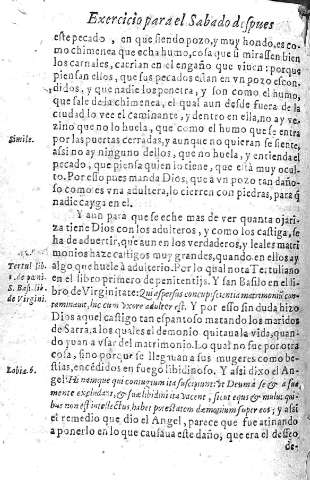 Exercicio para el Sabado despues
este pecado, en que siendo pozo, y muy hondo, es co-
mo chimenea que echa humo, cosa que si mirassen bien
los carnales, caerian en el engaño que viuen: porque
piensan ellos, que sus pecados estan en vn pozo escon-
didos, y que nadie los penetra, y son como el humo,
que sale de la chimenea, el qual aun desde fuera de la
ciudad lo vee el caminante, y dentro en ella, no ay ve-
zino que no lo huela, que como el humo que se entra
Simile.
por las puertas cerradas, y aunque no quieran se siente,
assi no ay ninguno dellos, que no huela, y entienda el
pecado, que piensa quien lo tiene, que está muy ocul-
to. Por esso pues manda Dios, que à vn pozo tan daño-
so como es vna adultera, lo cierren con piedras, para q̃
nadie cayga en el.
Y aun para que se eche mas de ver quanta ojari-
za tiene Dios con los adulteros, y como los castiga, se
ha de aduertir, que aun en los verdaderos, y leales matri
monios haze castigos muy grandes, quando en ellos ay
Tertul. lib.
algo que huele à adulterio. Por lo qual nota Tertuliano
1. de pani.
en el libro primero de penitentijs. Y san Basilo en el li-
S. Bas. li.
bro de Virginitate: Qui aspersus concupiscentia matrimonii con-
de Virgini.
taminant, huc cum vxore adulter est. Y por esso sin duda hizo
Dios aquel castigo tan espantoso matando los maridos
de Sarra, a los quales el demonio quitaua la vida, quan-
do yuan a vsar del matrimonio. Lo qual no fue por otra
cosa, sino porque se llegauan a sus mugeres como be-
stias, encédidos en fuego libidinoso. Y assi dixo el An-
Tobia. 6.
gel: Hi namque qui coniugium ita suscipiunt, vt Deum à se & à sua
mente excludant, & suæ libidini ita vacent, sicut equus & mulus qui-
bus non est intellectus, habet potestatem dæmonium super eos; y assi
el remedio que dio el Angel, parece que fue atinando
a ponerlo en lo que causaua este daño, que era el desseo
de-